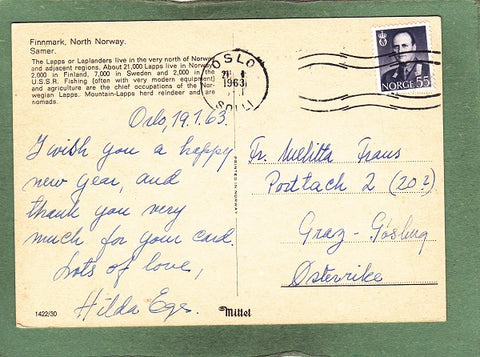 Finnmark, North Norway.
Samer.
The Lapps or Laplanders live in the very north of Norway
and adjacent regions. About 21,000 Lapps live in Norway
2,000 in Finland, 7,000 in Sweden and 2,000 in the
U.S.S.R. Fishing (often with very modern equipment)
and agriculture are the chief occupations of the Nor-
wegian Lapps. Mountain-Lapps herd reindeer and are
nomads.
OSLO
1963
NORGE 55
Oslo, 19.1.63.
I wish you a happy
new year, and
thank you very
much for your card.
Lots of love,
Hilda Egs.
PRINTED IN NORWAY
Fr. Melitta Traus
Posttach 2 (20
Graz - Gösting
Østerrike
1422/30
Mittet